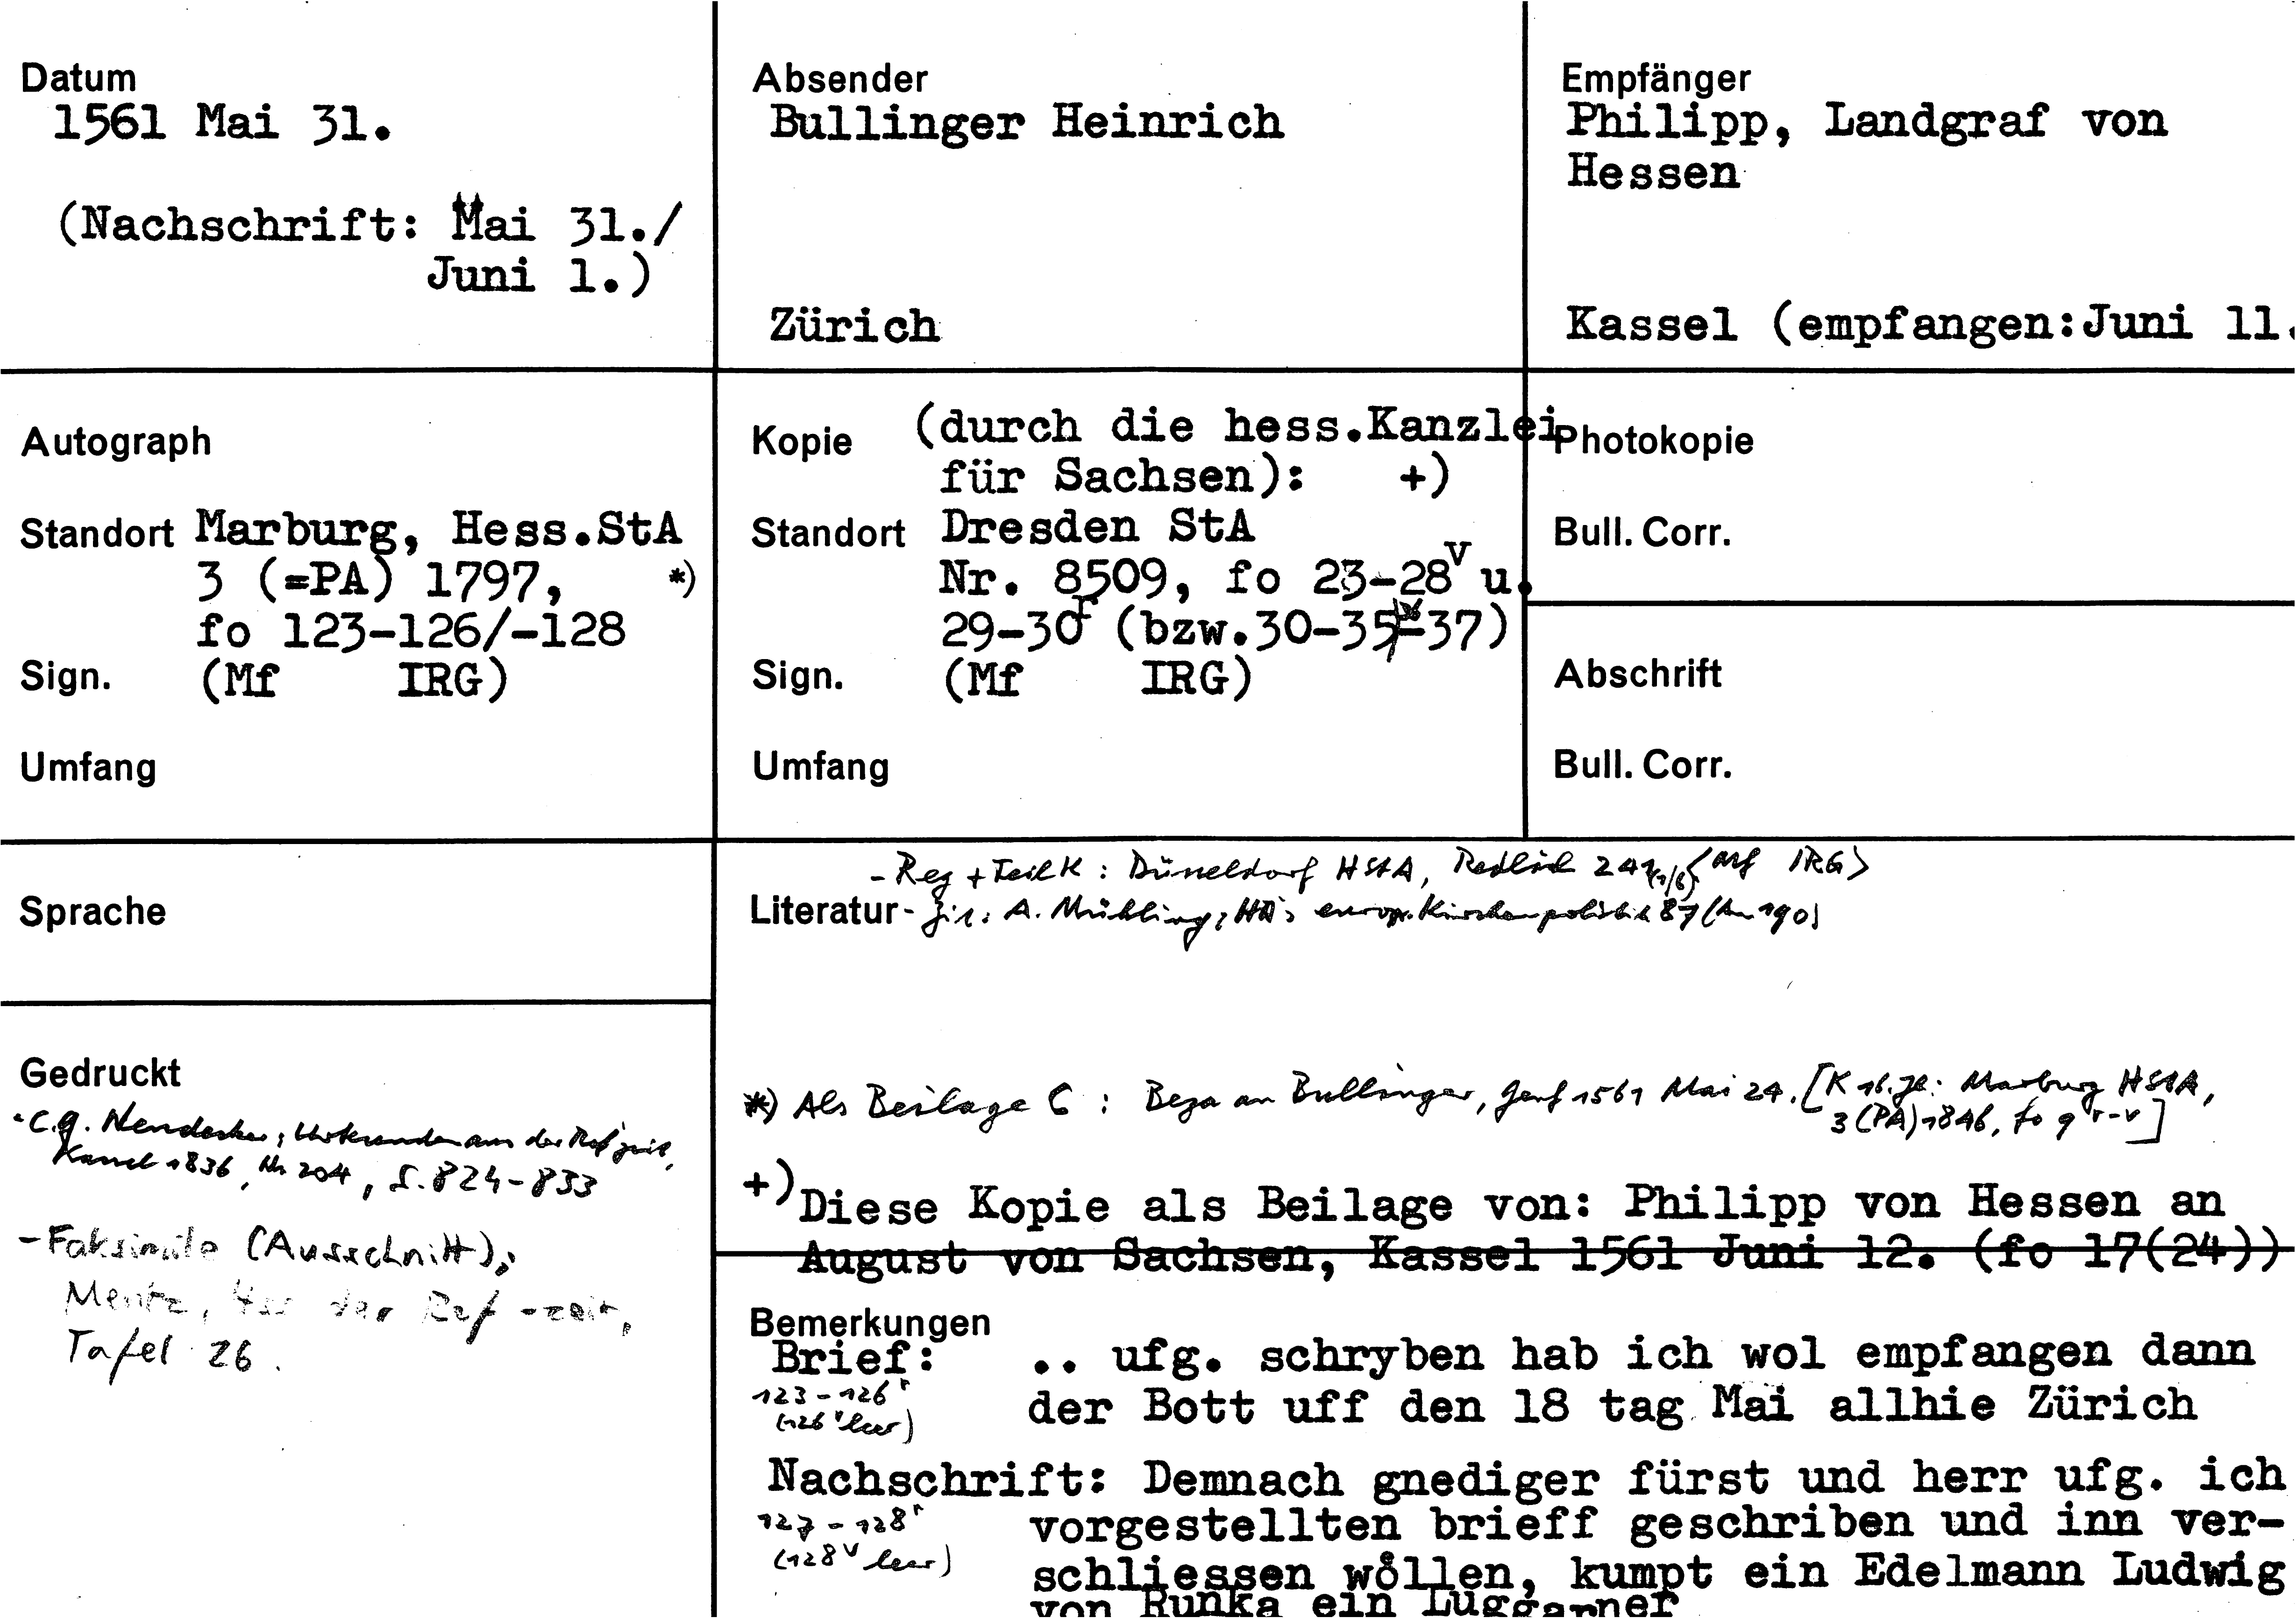 Datum
1561 Mai 31.
(Nachschrift: Mai 31./
Juni 1.)
Absender
Bullinger Heinrich
Zürich
Empfänger
Philipp, Landgraf von
Hessen
Kassel (empfangen:Juni 11.
Autograph
Standort Marburg, Hess.StA
3 (=PA) 1797, *)
fo 123-126/-128
Sign. (Mf IRG)
Umfang
Kopie (durch die hess.Kanzlei
für Sachsen): +)
Standort Dresden StA
Nr. 8509, fo 23-28v u.
29-30r (bzw.30-35-37)
Sign. (Mf IRG)
Umfang
Photokopie
Bull. Corr.
Abschrift
Bull. Corr.
Sprache
- Reg + Teil K : Düsseldorf HStA, Redlich (Mf IRG)
Literatur - Zit: A. Mühling, HB's europ. Kirchenpolitik 87 (Anm 190)
Gedruckt
- C.G. Neudecker, Urkunden aus der Ref'zeit,
Kassel 1836, Nr. 204, S. 824-833
- Faksimile (Ausschnitt):
Mentz, der Ref -zeit,
Tafel 26.
*) Als Beilage C : Beza an Bullinger, Genf 1561 Mai 24. [K 16. Jh: Marburg HStA,
3 (PA) 1846, fo 9 r-v]
+) Diese Kopie als Beilage von: Philipp von Hessen an
August von Sachsen, Kassel 1561 Juni 12. (fo 17(24))
Bemerkungen
Brief: .. ufg. schryben hab ich wol empfangen dann
123-126r der Bott uff den 18 tag Mai allhie Zürich
(126v leer)
Nachschrift: Demnach gnediger fürst und herr ufg. ich
127-128r vorgestellten brieff geschriben und inn ver-
(128v leer) schliessen wöllen, kumpt ein Edelmann Ludwig
von Runka ein Luggarner